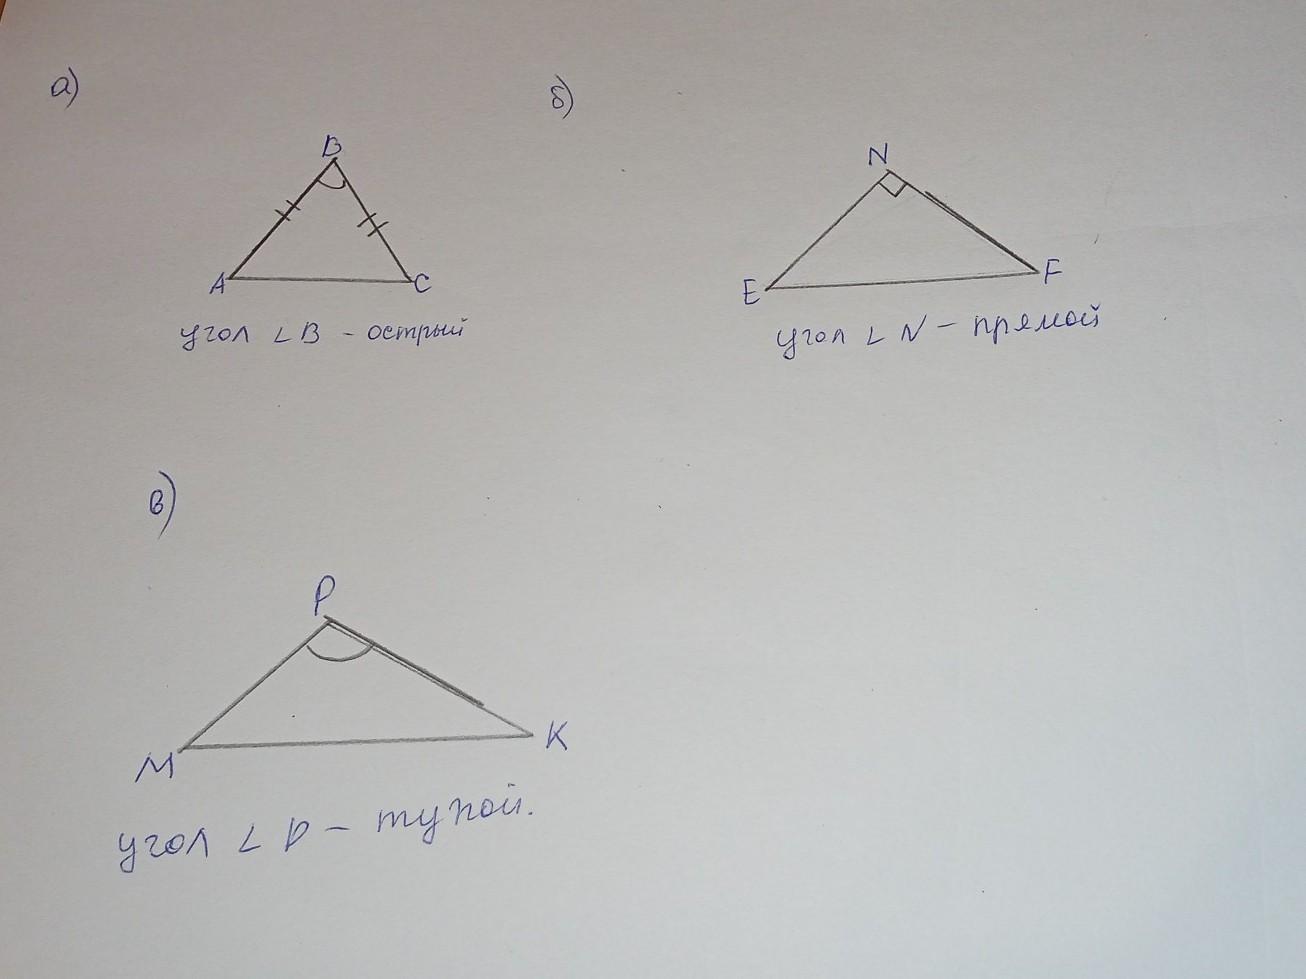 а)
б)
B
A
C
угол ∠B - острый
N
E
F
угол ∠N - прямой
в)
P
M
K
угол ∠P - тупой.